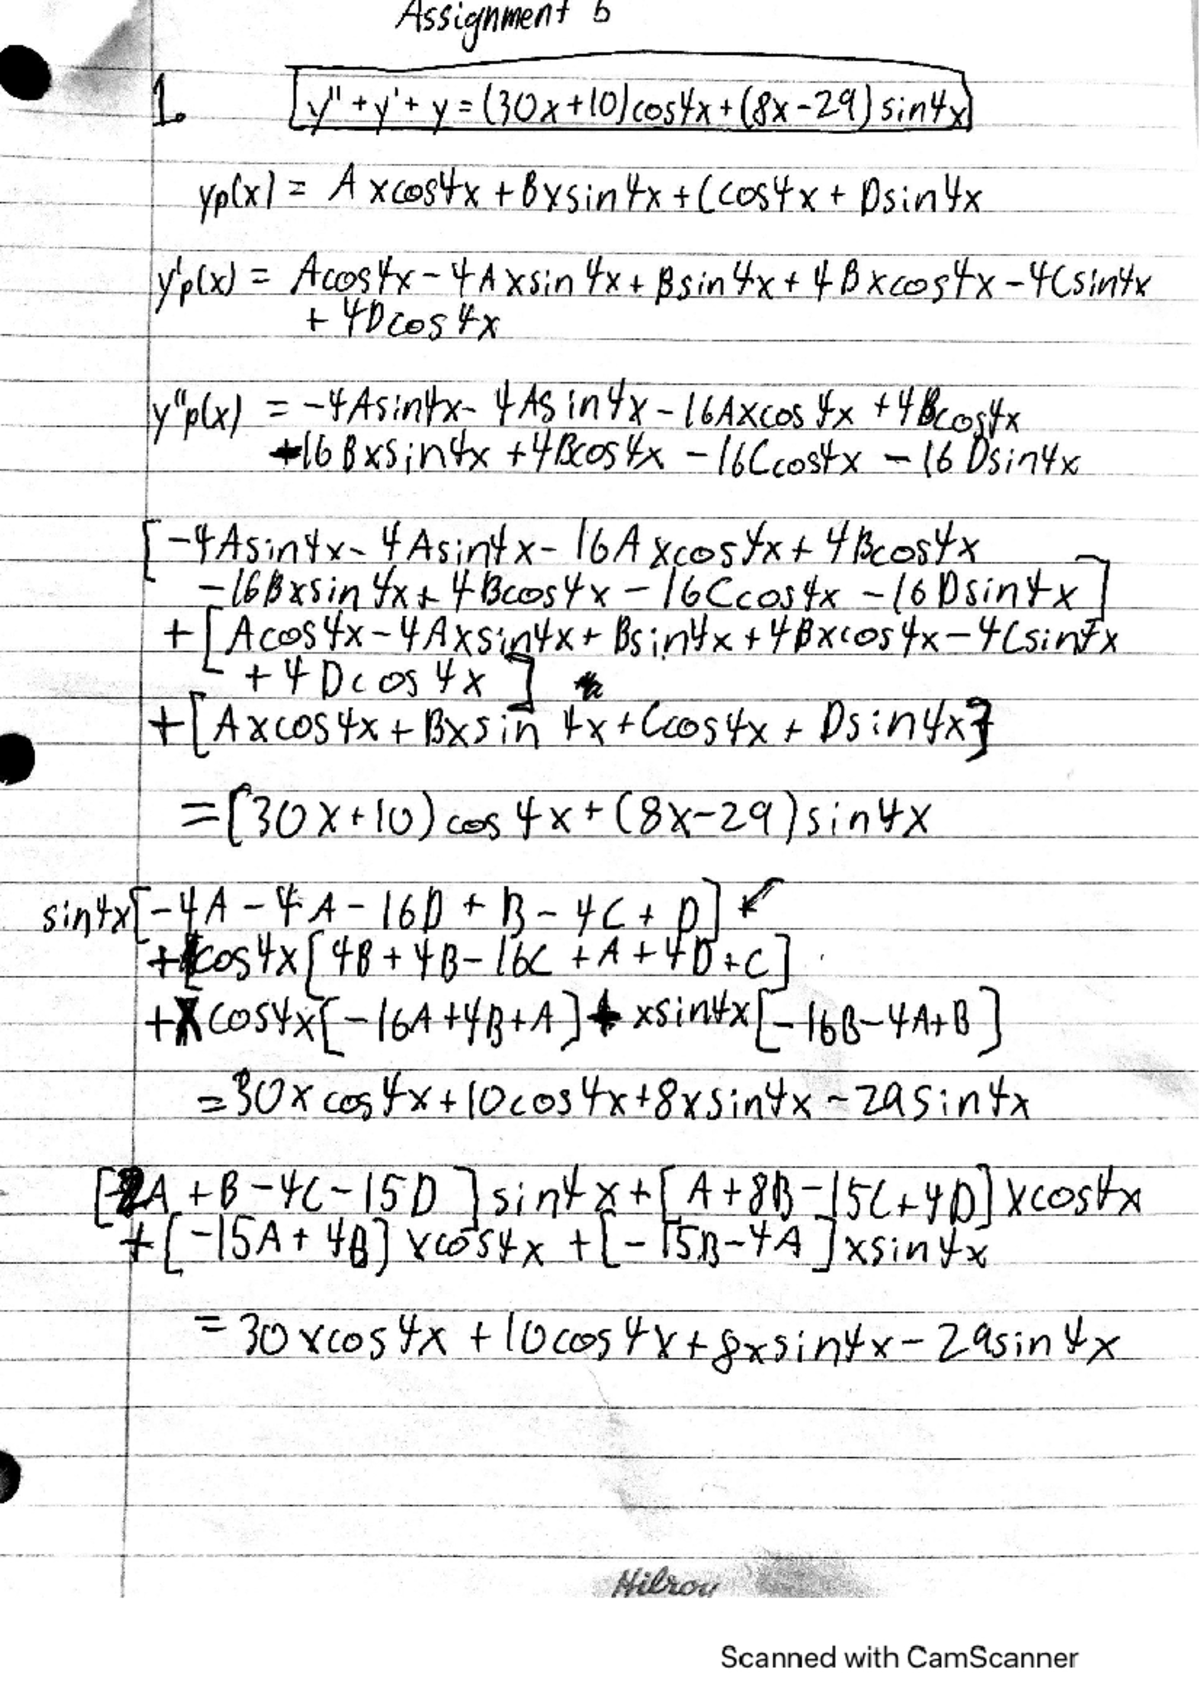 Assignment 5
1. y" + y' + y = (30x+10)cos4x + (8x-29) sin4x
yp(x) = Axcos4x + Bxsin4x + Ccos4x + Dsin4x
y'p(x) = Acos4x - 4Axsin4x + Bsin4x + 4Bxcos4x - 4Csin4x
+ 4Dcos4x
y"p(x) = -4Asin4x - 4Asin4x - 16Axcos4x + 4Bcos4x
-16Bxsin4x + 4Bcos4x - 16Ccos4x - 16Dsin4x
[-4Asin4x - 4Asin4x - 16Axcos4x + 4Bcos4x
-16Bxsin4x + 4Bcos4x - 16Ccos4x - 16Dsin4x]
+ [Acos4x - 4Axsin4x + Bsin4x + 4Bxcos4x - 4Csin4x
+ 4Dcos4x]
+ [Axcos4x + Bxsin4x + Ccos4x + Dsin4x]
= (30x+10)cos4x + (8x-29)sin4x
sin4x[-4A - 4A - 16D + B - 4C + D]
+ cos4x[4B + 4B - 16C + A + 4D + C]
+ xcos4x[-16A + 4B + A] + xsin4x[-16B - 4A + B]
= 30xcos4x + 10cos4x + 8xsin4x - 29sin4x
[-8A + B - 4C - 15D]sin4x + [A + 8B - 15C + 4D]xcos4x
+ [-15A + 4B]xcos4x + [-15B - 4A]xsin4x
= 30xcos4x + 10cos4x + 8xsin4x - 29sin4x
Hilroy
Scanned with CamScanner